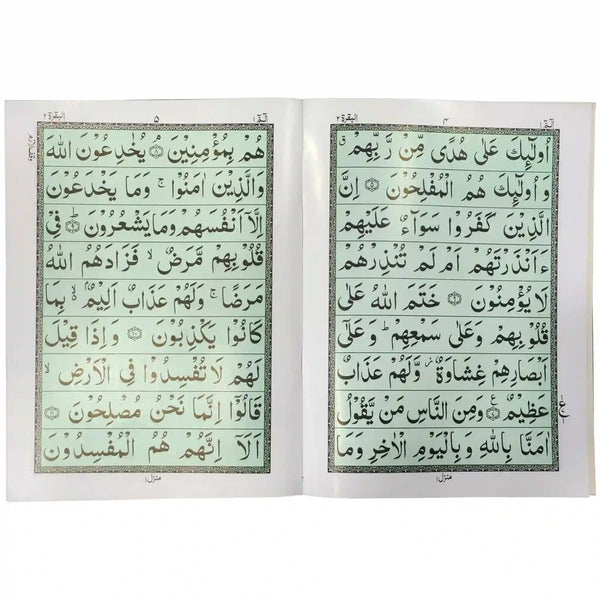 البقرة ٢
٤
الٓمٓ ١
اُولٰٓئِكَ عَلٰى هُدًى مِّنْ رَّبِّهِمْ ق
وَ اُولٰٓئِكَ هُمُ الْمُفْلِحُوْنَ ۝٥ اِنَّ
الَّذِيْنَ كَفَرُوْا سَوَآءٌ عَلَيْهِمْ
ءَاَنْذَرْتَهُمْ اَمْ لَمْ تُنْذِرْهُمْ
لَا يُؤْمِنُوْنَ ۝٦ خَتَمَ اللّٰهُ عَلٰى
قُلُوْبِهِمْ وَعَلٰى سَمْعِهِمْ ؕ وَعَلٰٓى
اَبْصَارِهِمْ غِشَاوَةٌ ز وَّلَهُمْ عَذَابٌ
عَظِيْمٌ ۝٧ ع وَمِنَ النَّاسِ مَنْ يَّقُوْلُ
اٰمَنَّا بِاللّٰهِ وَ بِالْيَوْمِ الْاٰخِرِ وَمَا
ع
منزل ١
البقرة ٢
٥
الٓمٓ ١
هُمْ بِمُؤْمِنِيْنَ ۝٨ يُخٰدِعُوْنَ اللّٰهَ
وَالَّذِيْنَ اٰمَنُوْا ۚ وَمَا يَخْدَعُوْنَ
اِلَّآ اَنْفُسَهُمْ وَمَا يَشْعُرُوْنَ ؕ ۝٩ فِيْ
قُلُوْبِهِمْ مَّرَضٌ ۙ فَزَادَهُمُ اللّٰهُ
مَرَضًا ۚ وَلَهُمْ عَذَابٌ اَلِيْمٌ ۢ ۙ بِمَا
كَانُوْا يَكْذِبُوْنَ ۝١٠ وَاِذَا قِيْلَ
لَهُمْ لَا تُفْسِدُوْا فِي الْاَرْضِ ۙ
قَالُوْٓا اِنَّمَا نَحْنُ مُصْلِحُوْنَ ۝١١
اَلَآ اِنَّهُمْ هُمُ الْمُفْسِدُوْنَ
منزل ١